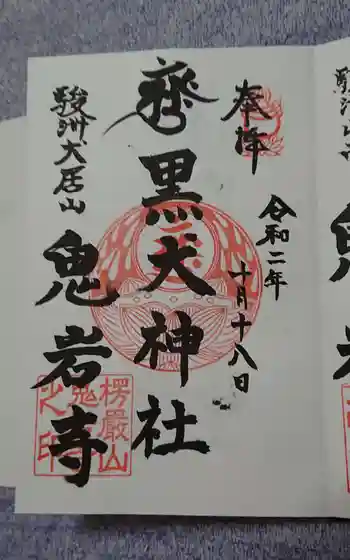 奉拝
令和二年
十月十八日
黒犬神社
駿州犬居山
鬼岩寺
楞嚴山
鬼
之印